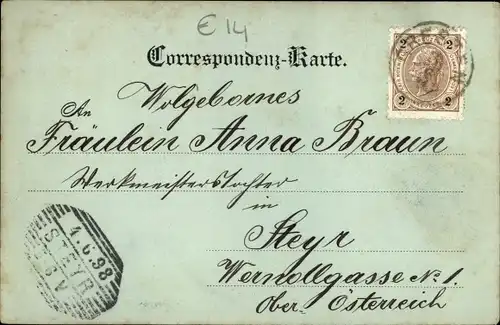 E 14
Correspondenz-Karte.
2 2
2 2
Wolgebornes
An
Fräulein Anna Braun
Werkmeisterstochter
in
Steyr
Wernollgasse No 1.
Ober-Österreich
STEYR
1.6.98
8 V